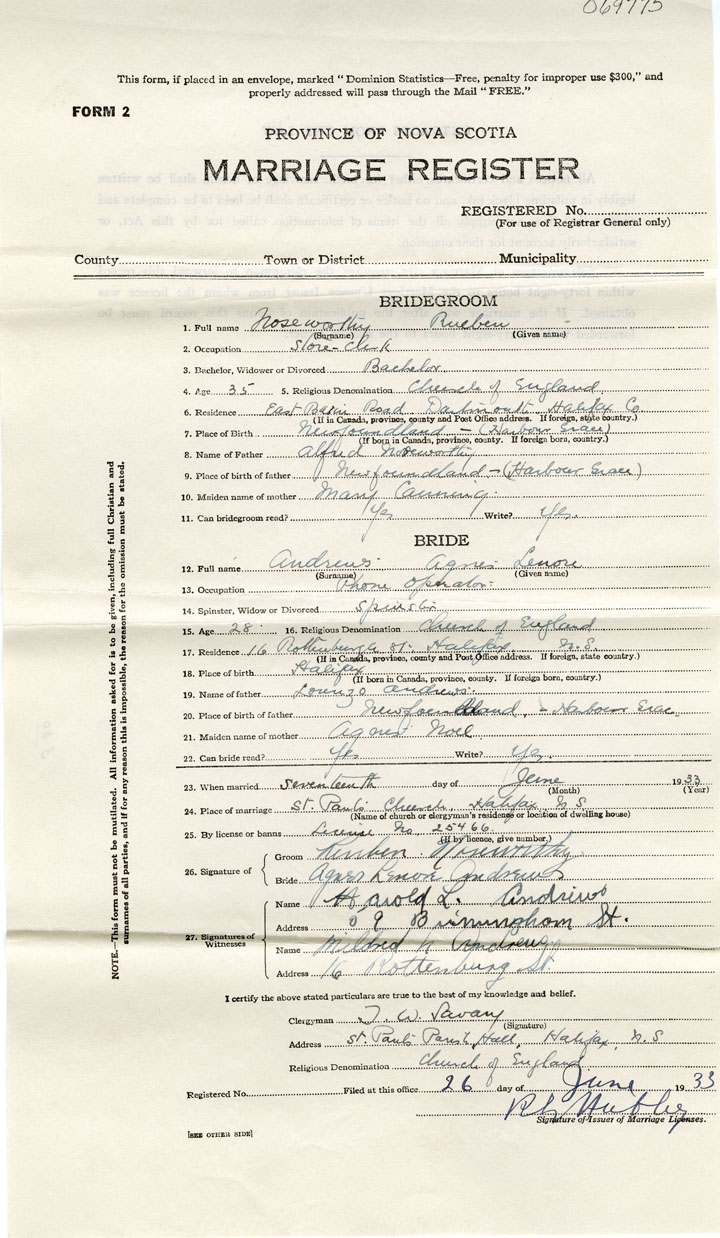 069775
This form, if placed in an envelope, marked "Dominion Statistics—Free, penalty for improper use $300," and
properly addressed will pass through the Mail "FREE."
FORM 2
PROVINCE OF NOVA SCOTIA
MARRIAGE REGISTER
REGISTERED No.
(For use of Registrar General only)
County Town or District Municipality
BRIDEGROOM
1. Full name Noseworthy Rueben
(Surname) (Given name)
2. Occupation Store-Clerk
3. Bachelor, Widower or Divorced Bachelor
4. Age 35 5. Religious Denomination Church of England
6. Residence East Road Dartmouth Halifax Co.
(If in Canada, province, county and Post Office address. If foreign, state country.)
7. Place of Birth Newfoundland - (Harbour Grace)
(If born in Canada, province, county. If foreign born, country.)
8. Name of Father Alfred Noseworthy
9. Place of birth of father Newfoundland - (Harbour Grace)
10. Maiden name of mother Mary Canning.
11. Can bridegroom read? Yes Write? Yes.
BRIDE
12. Full name Andrews Agnes Lenore
(Surname) (Given name)
13. Occupation Phone Operator
14. Spinster, Widow or Divorced Spinster
15. Age 28 16. Religious Denomination Church of England
17. Residence 16 Rottenburgh St. Halifax N.S.
(If in Canada, province, county and Post Office address. If foreign, state country.)
18. Place of birth Halifax
(If born in Canada, province, county. If foreign born, country.)
19. Name of father Lorenzo Andrews
20. Place of birth of father Newfoundland, - Harbour Grace
21. Maiden name of mother Agnes Noel
22. Can bride read? Yes Write? Yes.
23. When married Seventeenth day of June 1933
(Month) (Year)
24. Place of marriage St. Paul's Church, Halifax N S
(Name of church or clergyman's residence or location of dwelling house)
25. By license or banns License No 25466
(If by licence, give number.)
26. Signature of
Groom Reuben Noseworthy
Bride Agnes Lenore Andrews
27. Signatures of Witnesses
Name Harold L. Andrews
Address 09 Birmingham St.
Name Mildred N Andrews
Address 16 Rottenburg St.
I certify the above stated particulars are true to the best of my knowledge and belief.
Clergyman T. W. Savary
(Signature)
Address St. Paul's Parish Hall, Halifax, N.S
Religious Denomination Church of England
Registered No. Filed at this office 26 day of June 1933
Signature of Issuer of Marriage Licenses.
[SEE OTHER SIDE]
NOTE.—This form must not be mutilated. All information asked for is to be given, including full Christian and
surnames of all parties, and if for any reason this is impossible, the reason for the omission must be stated.